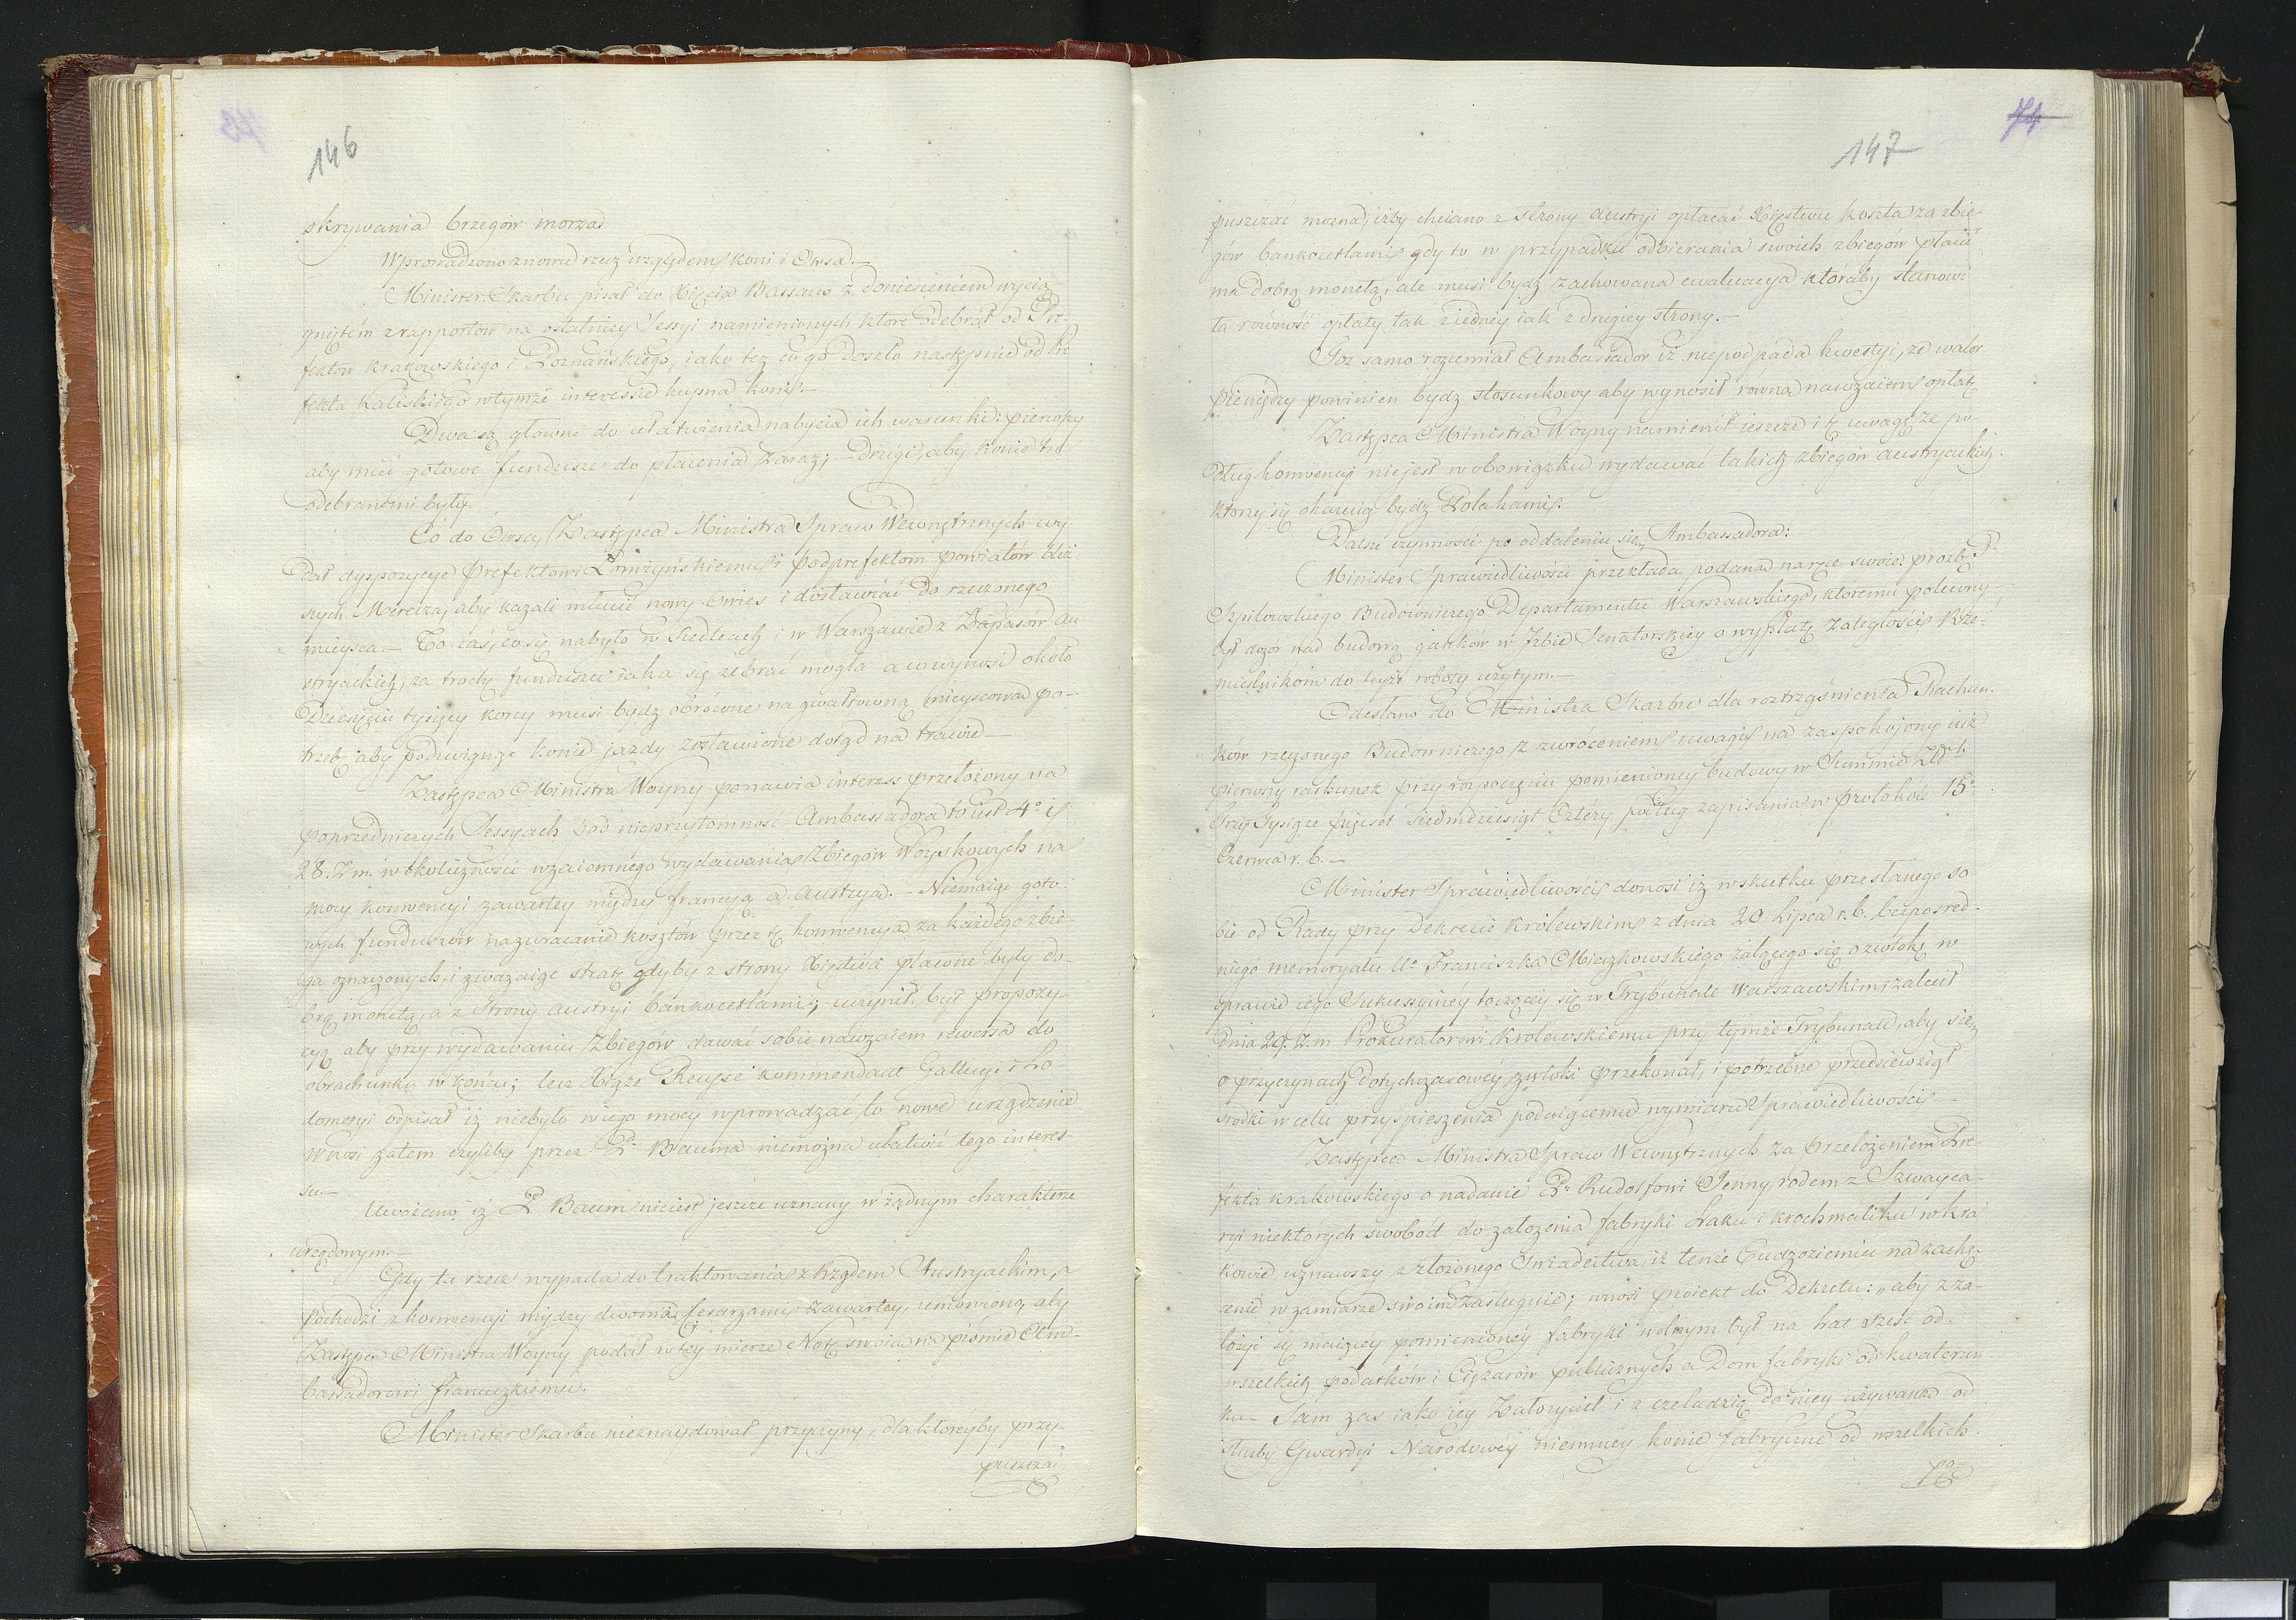 146
skrywania brzegów morza
Wprowadzono znowu rzecz względem koni i Owsa.—
Minister Skarbu pisał do Xięcia Bassano z doniesieniem wycią-
gniętém z rapportów na ostatniey Sessyi namienionych które odebrał od Pre-
fektów Krakowskiego i Poznańskiego, iako też co go doszło następnie od Pre
fekta Kaliskiego w tymże interessie kupna koni.—
Dwa są główne do ułatwienia nabycia ich warunki: pierwszy
aby mieć gotowe fundusze do płacenia zaraz;— drugi, aby konie tu
odebranemi były.
Co do Owsa, Zastępca Ministra Spraw Wewnętrznych wy-
dał dyspozycye Prefektowi Łomżyńskiemu i podprefektom powiatów bliż
szych Merecza, aby kazali młócić nowy Owies i dostawiać do rzeczonego
mieysca.— To zaś, co się nabyło w Siedlcach i w Warszawie z Zapasów Au-
stryackich, za trochę funduszu iaka się zebrać mogła a wynosi około
Dziesięciu tysięcy korcy musi bydź obrócone na gwałtowną mieyscową po-
trzebę aby podźwignąć konie jazdy zostawione dotąd na trawie—
Zastępca Ministra Woyny ponawia interess przełożony na
poprzedniczych Sessyach pod nieprzytomność Ambassadora to iest 4o i
28. Z. m. w okoliczności wzaiemnego wydawania Zbiegów Woyskowych na
mocy konwencyi zawartey między francyą a Austryą.— Niemaiąc goto-
wych funduszów na zwracanie kosztów przez tę konwencyą za każdego zbie-
ga oznaczonych, i zważaiąc stratę gdyby z strony Xięstwa płacone były do-
brą monetą, a z Strony Austryi bankocetlami; uczynił był propozy-
cyą aby przy wydawaniu Zbiegów dawać sobie nawzaiem rewersa do
obrachunku w końcu; lecz Xiąże Reuss kommendant Gallicyi i Lo-
domeryi odpisał iż niebyło w iego mocy wprowadzać to nowe urządzenie
Wnosi zatem czyliby przez Pa Bauma niemożna ułatwić tego interes-
su.—
Uważano iż P Baum nieiest jeszcze uznany w żądnym charakterze
urzędowym.—
Gdy ta rzecz wypada do traktowania z Rządem Austryackim, a
pochodzi z konwencyi między dwoma Cesarzami zawartey, umówiono, aby
Zastępca Ministra Woyny podał w tey mierze Notę swoią na piśmie Am-
bassadorowi francuzkiemu.
Minister Skarbu nieznaydował przyczyny, dla któreyby przy-
puszczać
147
74
puszczać można, iżby chciano z strony Austryi opłacać Xięstwu koszta za zbie-
gów bankocetlami gdy to w przypadku odbierania swoich zbiegów płacić
ma dobrą monetą, ale musi bydź zachowana ewaluacya któraby stanowi-
ła równość opłaty tak z iedney iak z drugiey strony.—
Toż samo rozumiał Ambassador iż niepodpada kwestyi, że walor
Pieniędzy powinien bydz stosunkowy aby wynosił równą nawzaiem opłatę
Zastępca Ministra Woyny namienił ieszcze i tę uwagę, że po-
dług konwencyi nie jest w obowiązku wydawać takich zbiegów austryackich
którzy się okazuią bydź Polakami.
Dalsze czynności po oddaleniu się Ambassadora:
Minister Sprawiedliwości przekłada podaną na ręce swoie prozbę Pa
Szpilowskiego Budowniczego Departamentu Warszawskiego, któremu polecony
był dozór nad budową ganków w Izbie Senatorskiey o wypłatę zaległości Rze-
mieślnikom do teyże roboty użytym.—
Odesłano do Ministra Skarbu dla roztrząśnienia Rachun-
ków rzeczonego Budowniczego z zwroceniem uwagi na zaspokojony iuż
pierwszy rachunek przy rozpoczęciu pomienioney budowy w Summie Złł
Trzy Tysiące pięćset siedmdziesiąt Cztéry podług zapisania w protokóle 15o
Czerwca r. b.—
Minister Sprawiedliwości donosi iż w skutku przesłanego so-
bie od Rady przy Dekrecie królewskim z dnia 20 Lipca r. b. bezpośred-
niego memoryału Ur Franciszka Mieczkowskiego żalącego się o zwłokę w
sprawie iego Sukcessyiney toczącey się w Trybunale Warszawskim, zalecił
dnia 29. Z. m Prokuratorowi królewskiemu przy tymże Trybunale, aby się
o przyczynach dotychczasowéy zwłoki przekonał, i potrzebne przedsiewziął
środki w celu przyspieszenia podaiącemu wymiaru Sprawiedliwości.—
Zastępca Ministra Spraw Wewnętrznych za przełożeniem Pre-
fekta krakowskiego o nadanie Pu Rudolfowi Jenny rodem z Szwayca-
ryi niektórych swobód do założenia fabryki Laku i krochmaliku w Kra
kowie uznawszy z złożonego Swiadectwa, iż tenże Cudzoziemiec na zachę-
cenie w zamiarze swoim zasługuie; wnosi proiekt do Dekretu: „aby z za-
łożyć się maiącey pomienionéy fabryki wolnym był na lat sześć od
wszelkich podatków i Ciężarów publicznych a Dom fabryki od kwaterun
ku— Sam zaś iako iey Założyciel i z czeladzią do niey używaną od
służby Gwardyi Narodowéy niemniey konie fabryczne od wszelkich
po